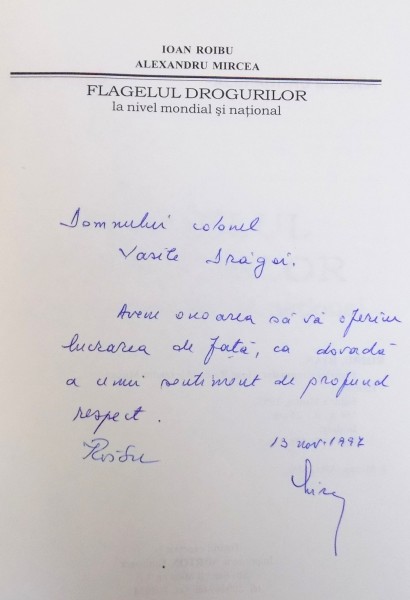 IOAN ROIBU
ALEXANDRU MIRCEA
FLAGELUL DROGURILOR
la nivel mondial și național
Domnului colonel
Vasile Drăgoi.
Avem onoarea să vă oferim
lucrarea de față, ca dovadă
a unui sentiment de profund
respect.
Roibu
13 nov. 1997